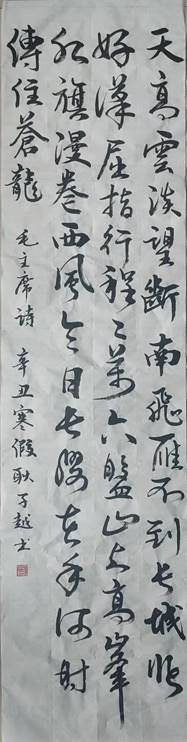 天高雲淡望斷南飛雁不到长城非
好漢屈指行程二萬六盤山上高峯
红旗漫卷西風今日长缨在手何时
縛住蒼龍 毛主席诗 辛丑寒假耿子越书